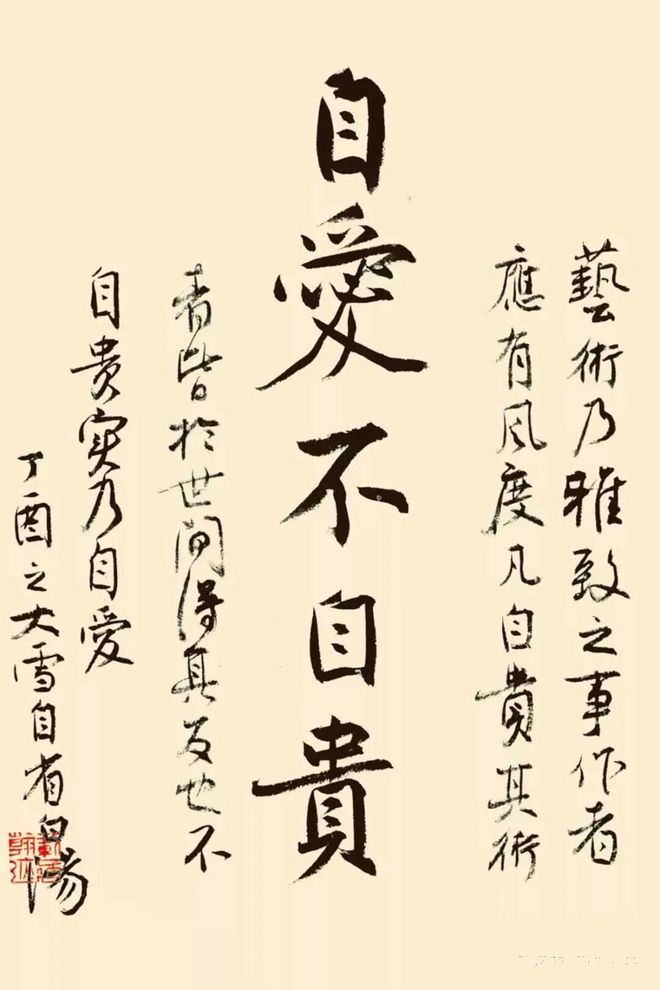 藝術乃雅致之事作者
應有风度凡自貴其術
自愛不自貴
者皆於世间得其反也不
自贵实乃自愛
丁酉之大雪自省白陽